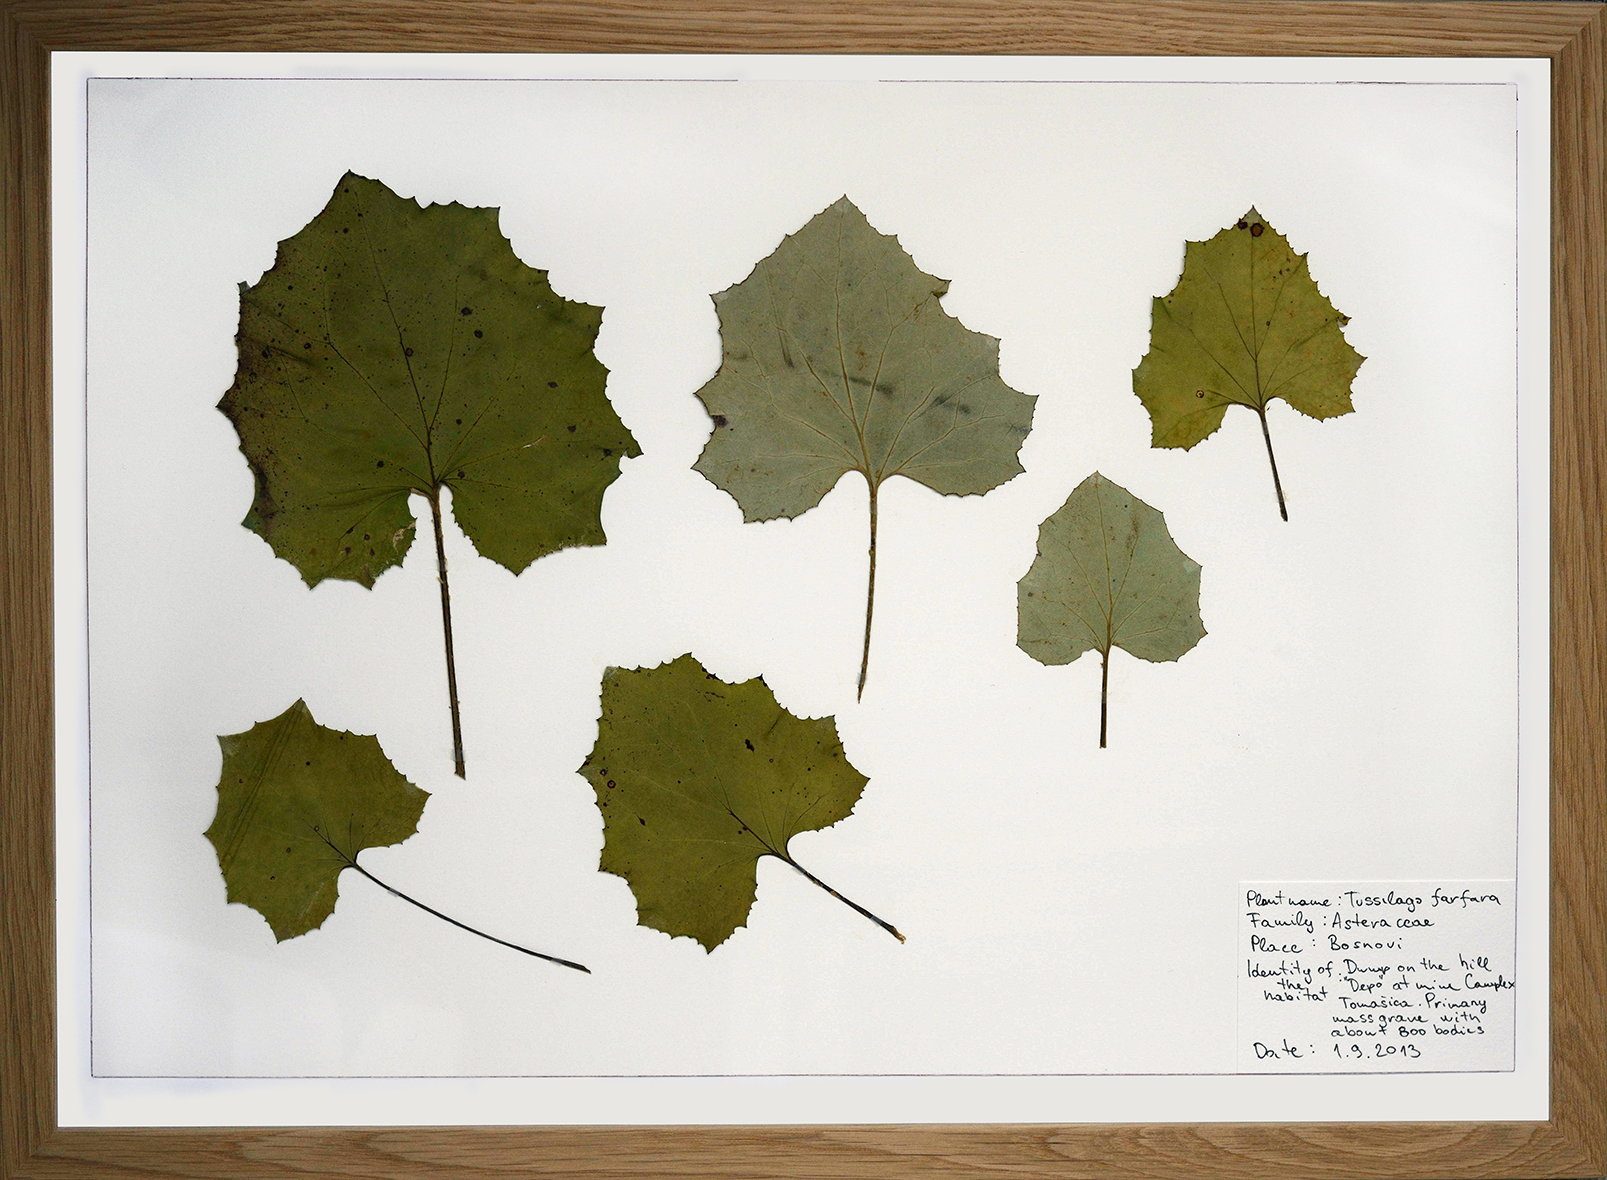 Plant name : Tussilago farfara
Family : Asteraceae
Place : Bosnovi
Identity of : Dump on the hill
the "Depo" at mine Complex
habitat Tomašica. Primary
mass grave with
about 800 bodies
Date : 1.9.2013